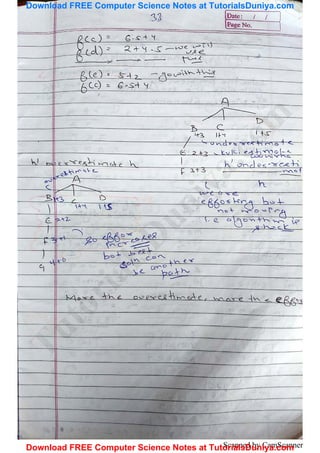 Download FREE Computer Science Notes at TutorialsDuniya.com
33
Date: / /
Page No.
f(c) = 6.5+4
f(d) = 2+4.5 - we will
use
this
f(e) = 5+2 - go with this
f(c) = 6.5+4
A
B C D
4+3 1+4 1+5
underestimate
E 2+3
F 3+3
h' underesti
mate
h
we are
efforting but
not moving
i.e algorithm is
stuck
h' overestimate h
overestimate
A
B+3 C D
1+4 1+5
E 2+2
F 3+1
G 4+0
so effort
increases
but best
can
be another
path
More the overestimate, more the effort
Scanned by CamScanner
Download FREE Computer Science Notes at TutorialsDuniya.com